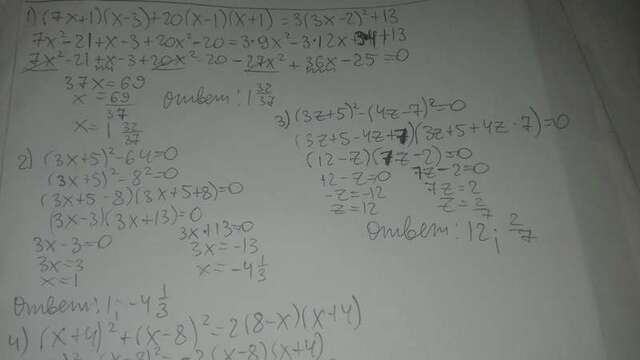 1) (7x+1)(x-3)+20(x-1)(x+1)=3(3x-2)²+13
7x²-21+x-3+20x²-20=3·9x²-3·12x +13
7x²-21+x-3+20x²-20-27x²+36x-25=0
37x=69
x=69/37
x=1 32/37
Ответ: 1 32/37
2) (3x+5)²-64=0
(3x+5)²-8²=0
(3x+5-8)(3x+5+8)=0
(3x-3)(3x+13)=0
3x-3=0 3x+13=0
3x=3 3x=-13
x=1 x=-4 1/3
Ответ: 1; -4 1/3
3) (3z+5)²-(4z-7)²=0
(3z+5-4z+7)(3z+5+4z-7)=0
(12-z)(7z-2)=0
12-z=0 7z-2=0
-z=-12 7z=2
z=12 z=2/7
Ответ: 12; 2/7
4) (x+4)²+(x-8)²=2(8-x)(x+4)
(x-8)²=-2(x-8)(x+4)